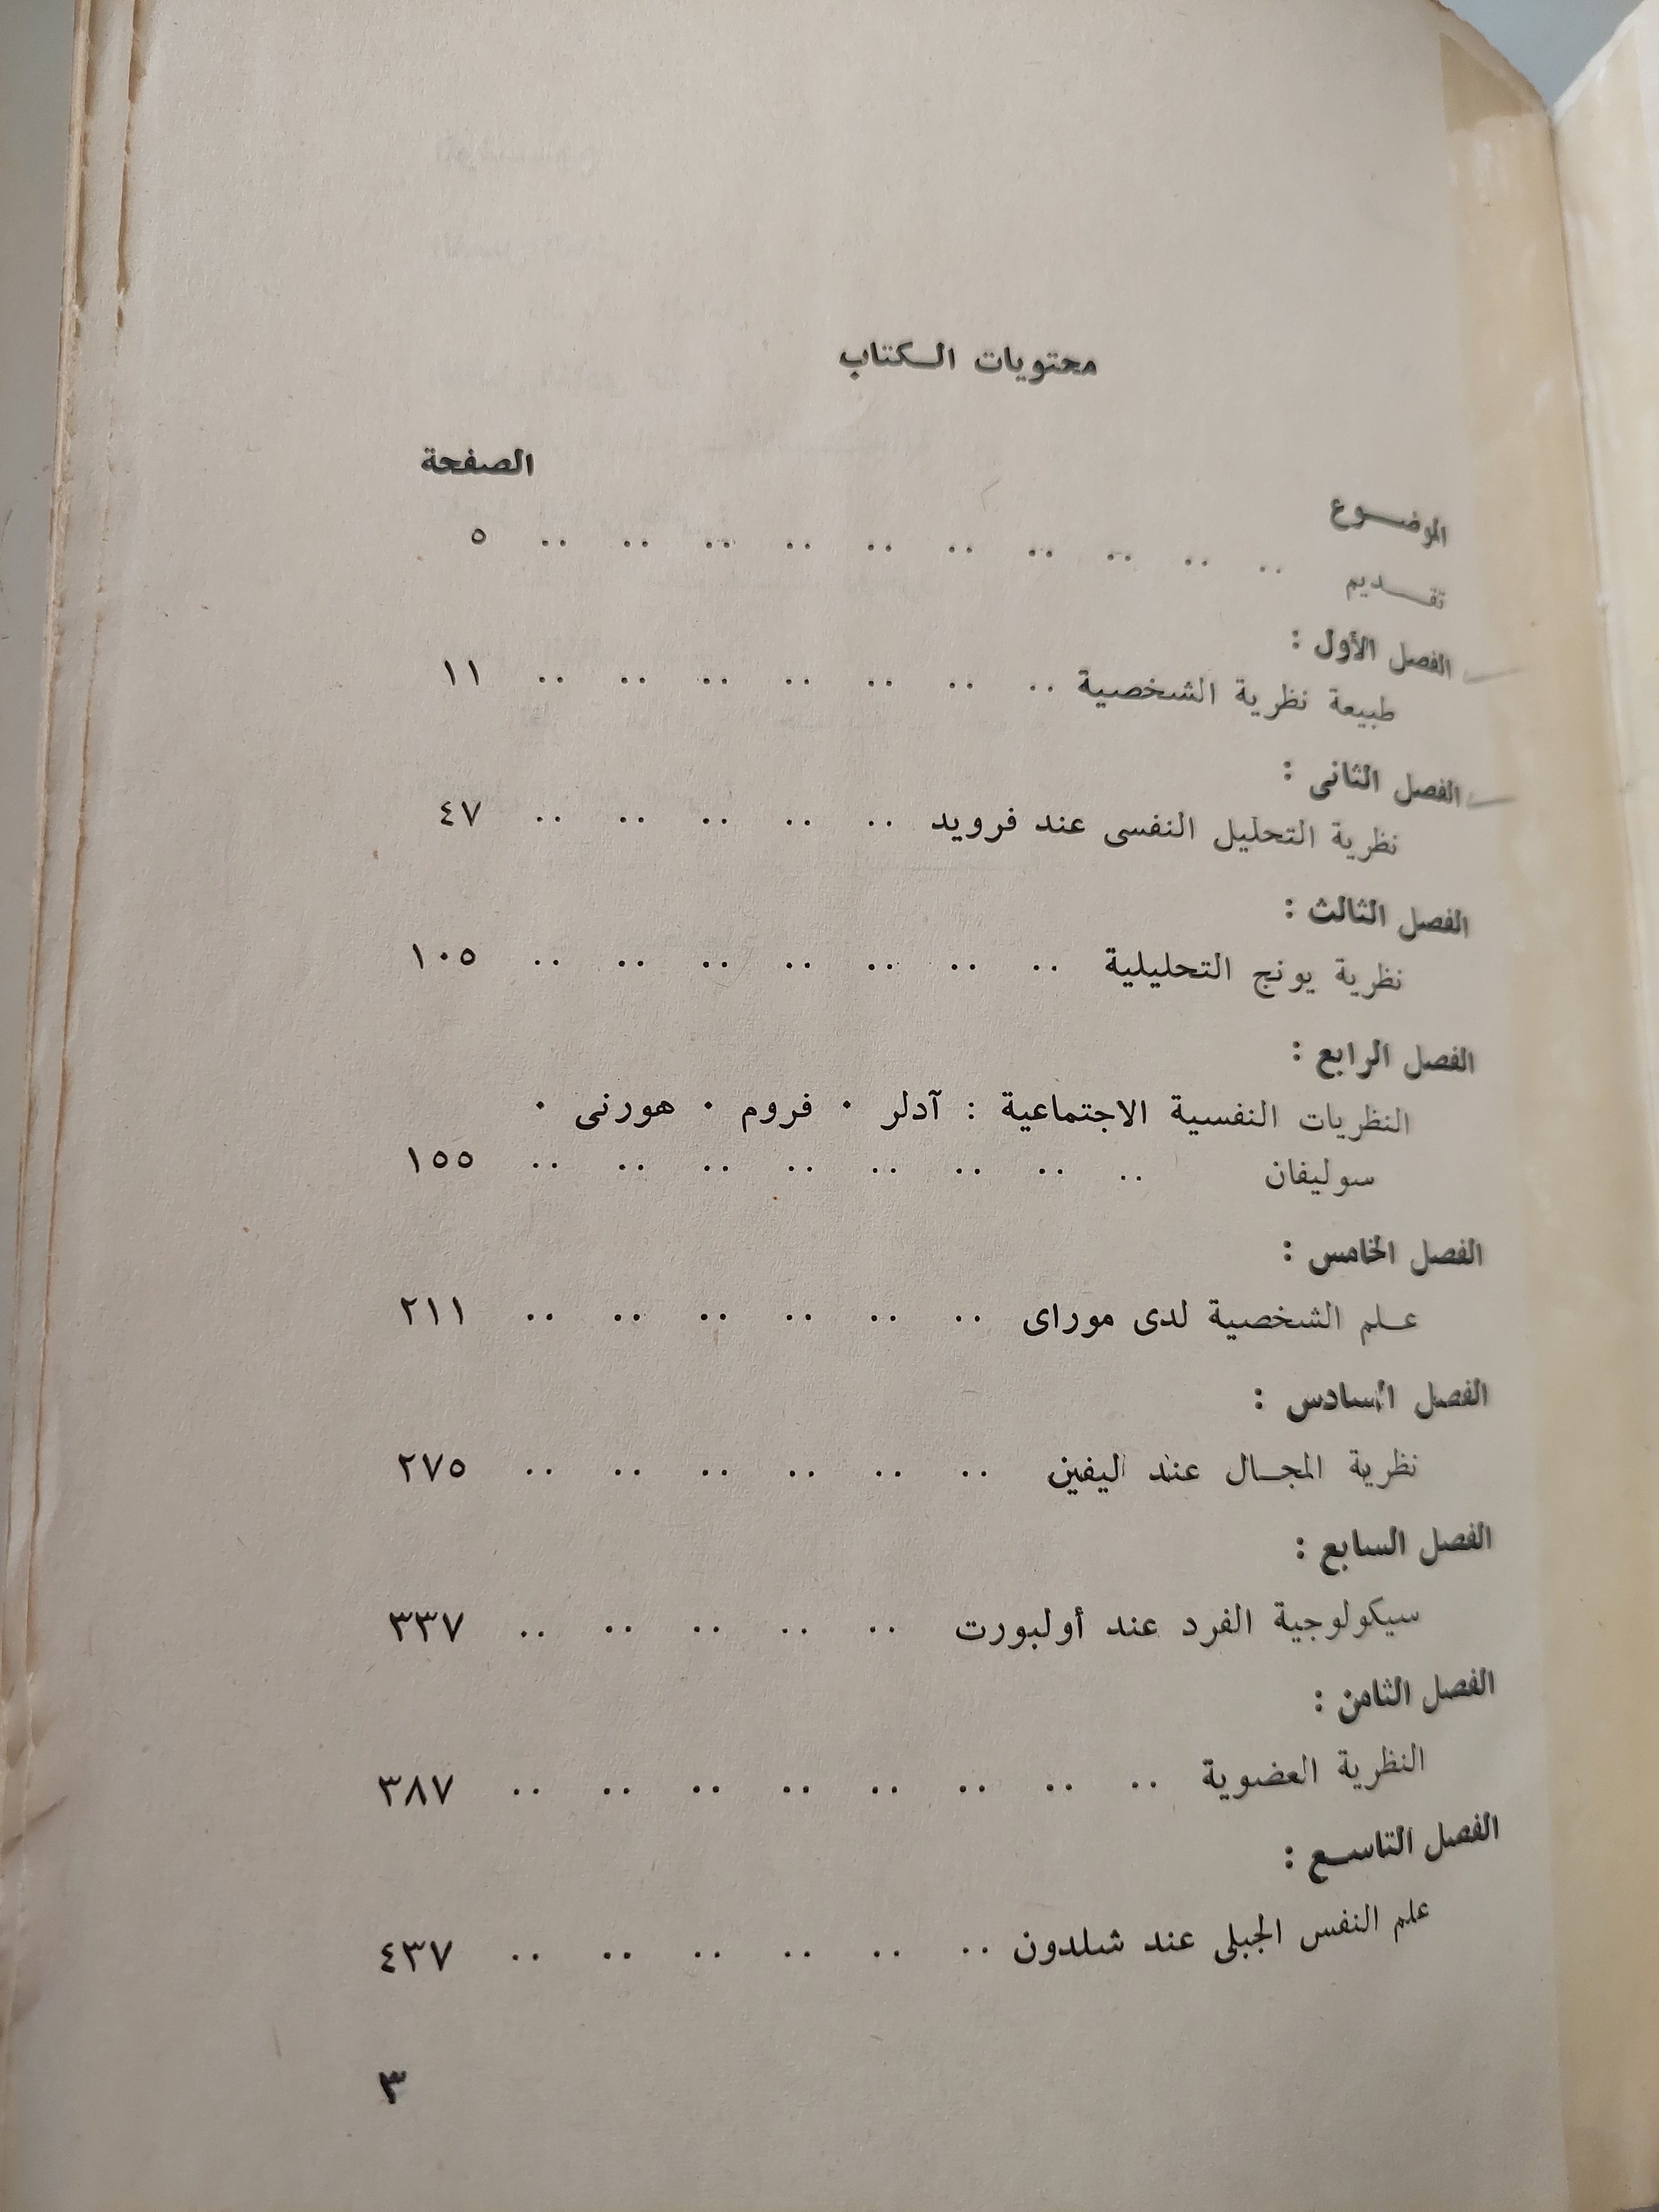 محتويات الكتاب
الموضوع الصفحة
تقديم .. .. .. .. .. .. .. .. .. .. ٥
الفصل الأول :
طبيعة نظرية الشخصية .. .. .. .. .. .. .. ١١
الفصل الثانى :
نظرية التحليل النفسى عند فرويد .. .. .. .. .. ٤٧
الفصل الثالث :
نظرية يونج التحليلية .. .. .. .. .. .. .. ١٠٥
الفصل الرابع :
النظريات النفسية الاجتماعية : آدلر ٠ فروم ٠ هورنى ٠
سوليفان .. .. .. .. .. .. .. .. ١٥٥
الفصل الخامس :
علم الشخصية لدى موراى .. .. .. .. .. .. ٢١١
الفصل السادس :
نظرية المجال عند ليفين .. .. .. .. .. .. ٢٧٥
الفصل السابع :
سيكولوجية الفرد عند أولبورت .. .. .. .. .. ٣٣٧
الفصل الثامن :
النظرية العضوية .. .. .. .. .. .. .. .. ٣٨٧
الفصل التاسع :
علم النفس الجبلى عند شلدون .. .. .. .. .. .. ٤٣٧
٣